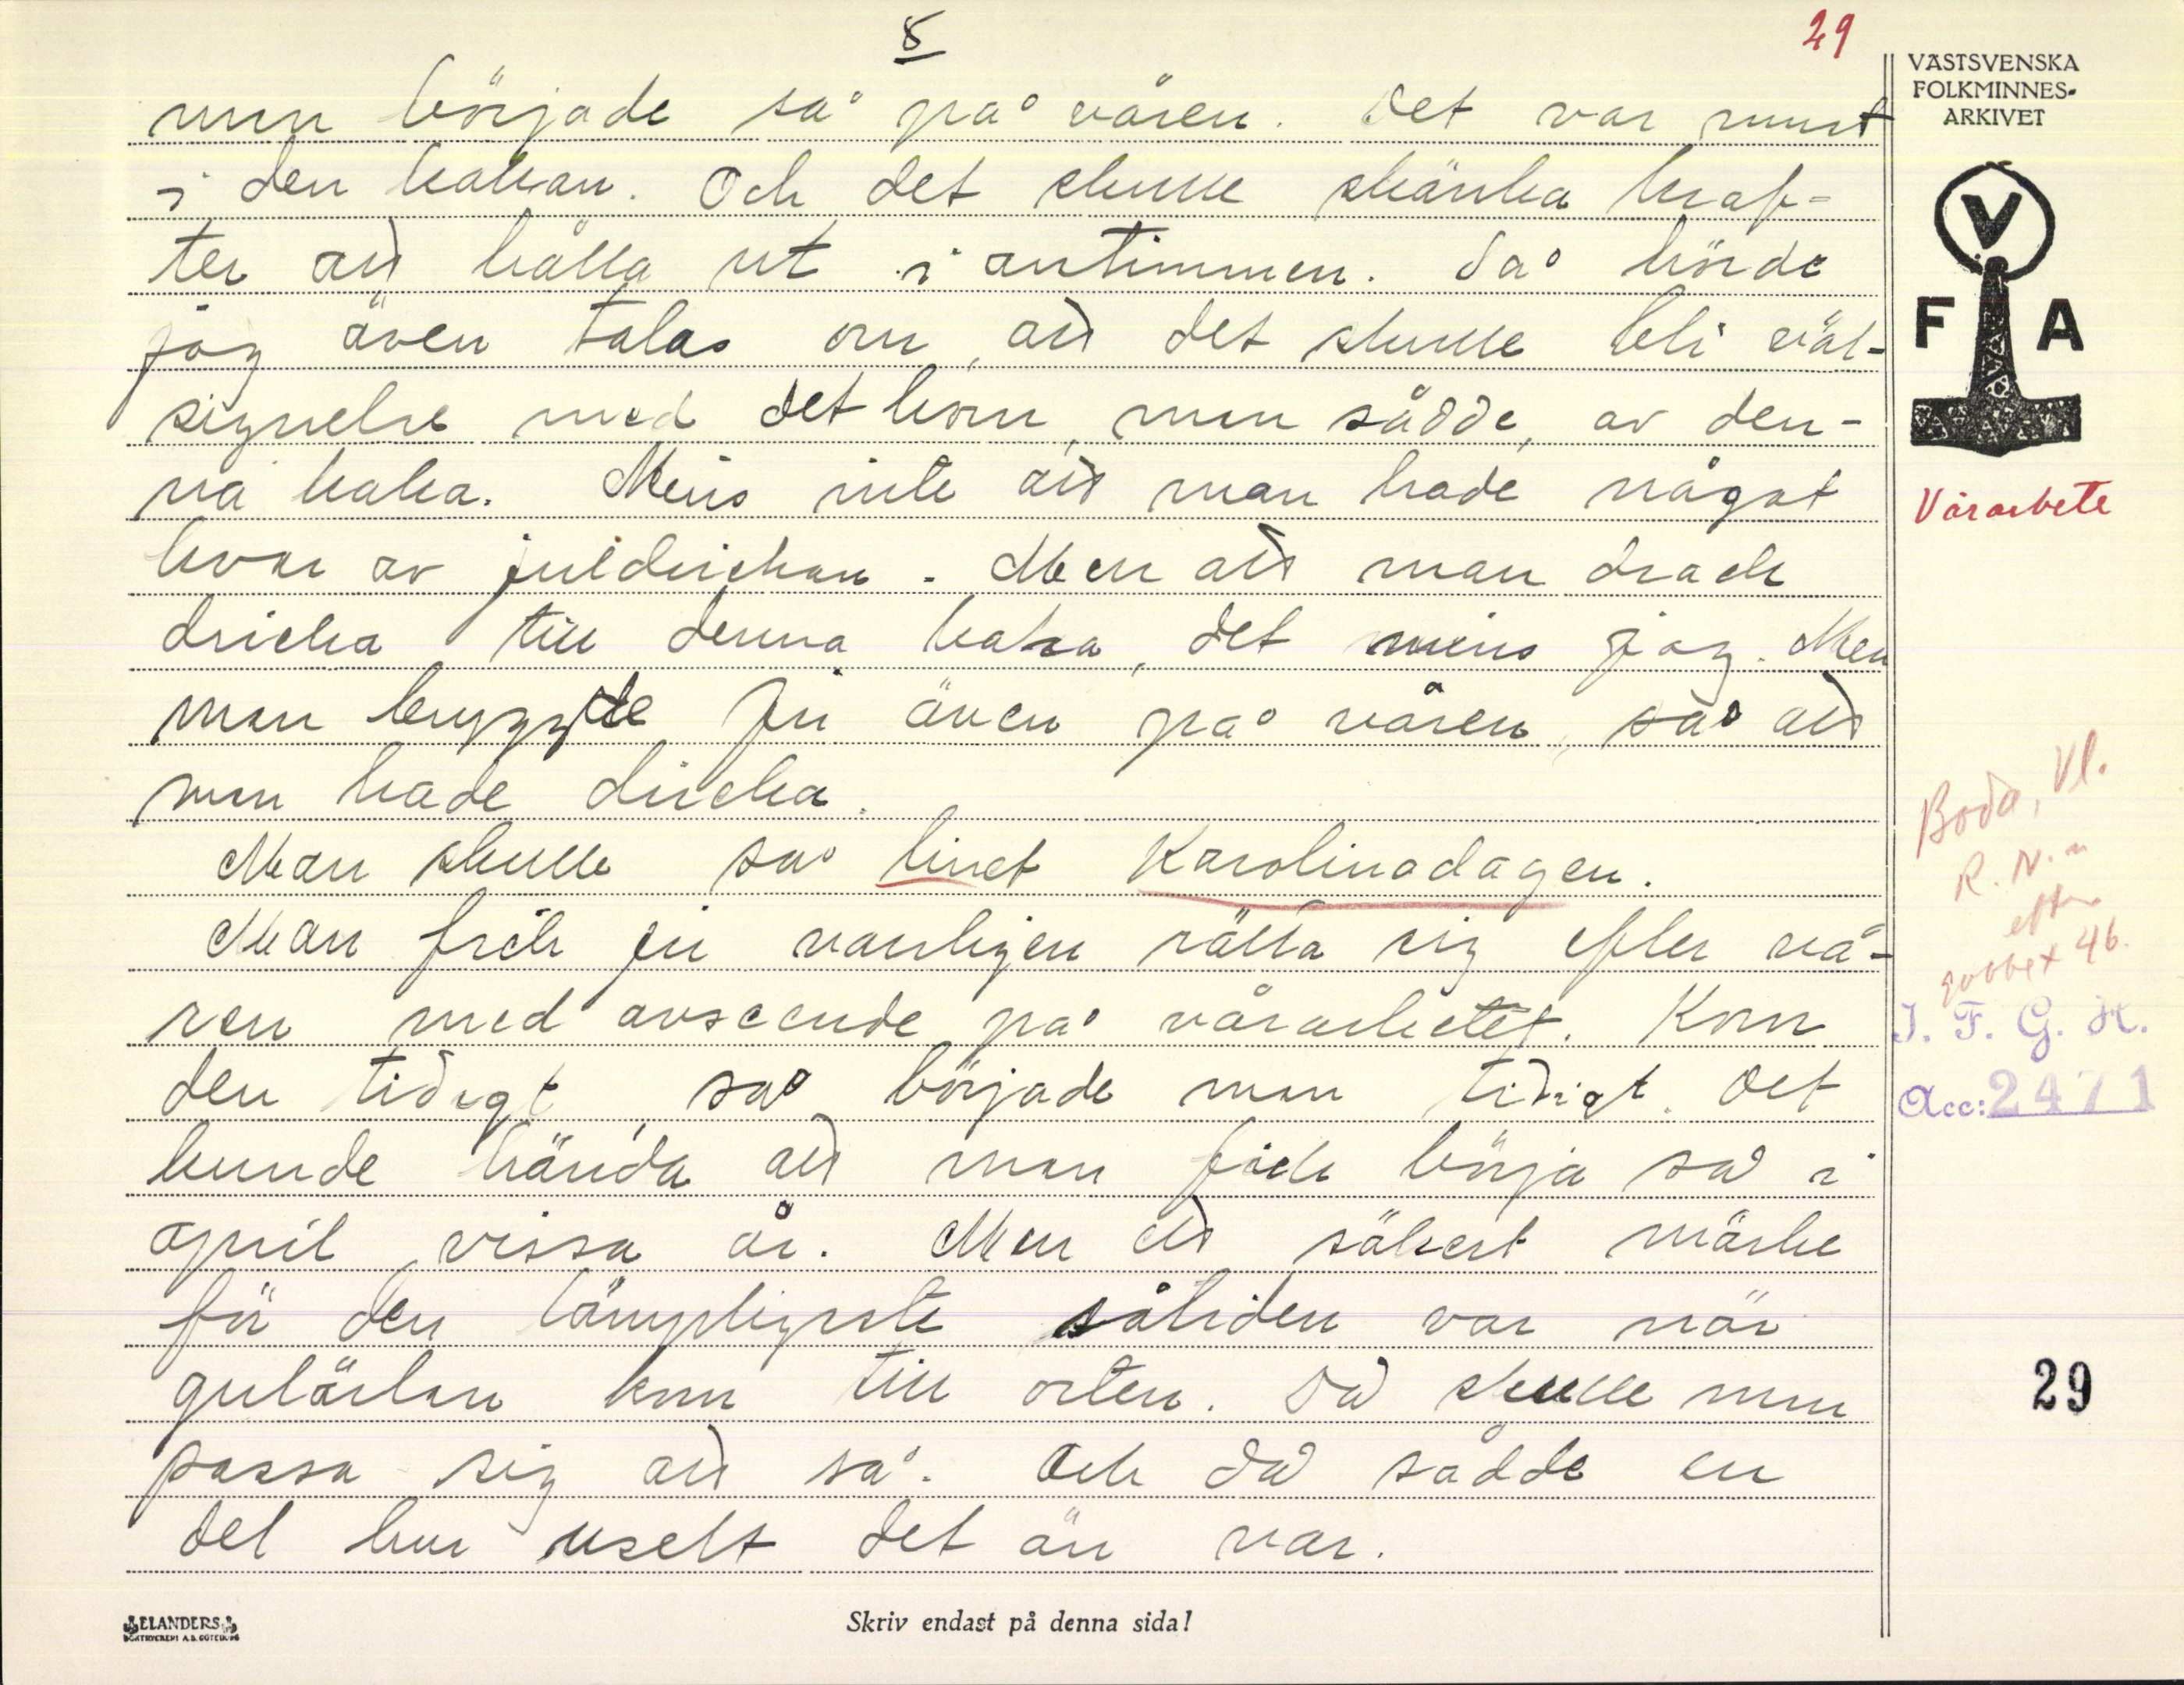 8
29
VÄSTSVENSKA
FOLKMINNES-
ARKIVET
V
F A
man började så på våren. Det var must
i den kakan. Och det skulle skänka kraf-
ter att hålla ut i antimmen. Så hörde
jag även talas om, att det skulle bli väl-
signelse med det korn, man sådde, av den-
na kaka. Meins inte att man hade något
kvar av juldrickan. Men att man drack
dricka till denna kaka, det meins jag. Men
man bryggde ju även på våren, så att
man hade dricka.
Man skulle så linet Karolinadagen.
Man fick ju vanligen rätta sig efter vå-
ren med avseende på vårarbetet. Kom
den tidigt, så började man tidigt. Det
kunde hända att man fick börja så i
april vissa år. Men ett säkert märke
för den lämpligaste såtiden var när
gulärlan kom till orten. Då skulle man
passa sig att så. Och då sådde en
del hur uselt det än var.
Vårarbete
Boda, Vl.
R. N.-n
efter
gubbe x 46.
I. F. G. H.
Acc: 2471
29
ELANDERS
BOKTRYCKERI A.B. GÖTEBORG
Skriv endast på denna sida!